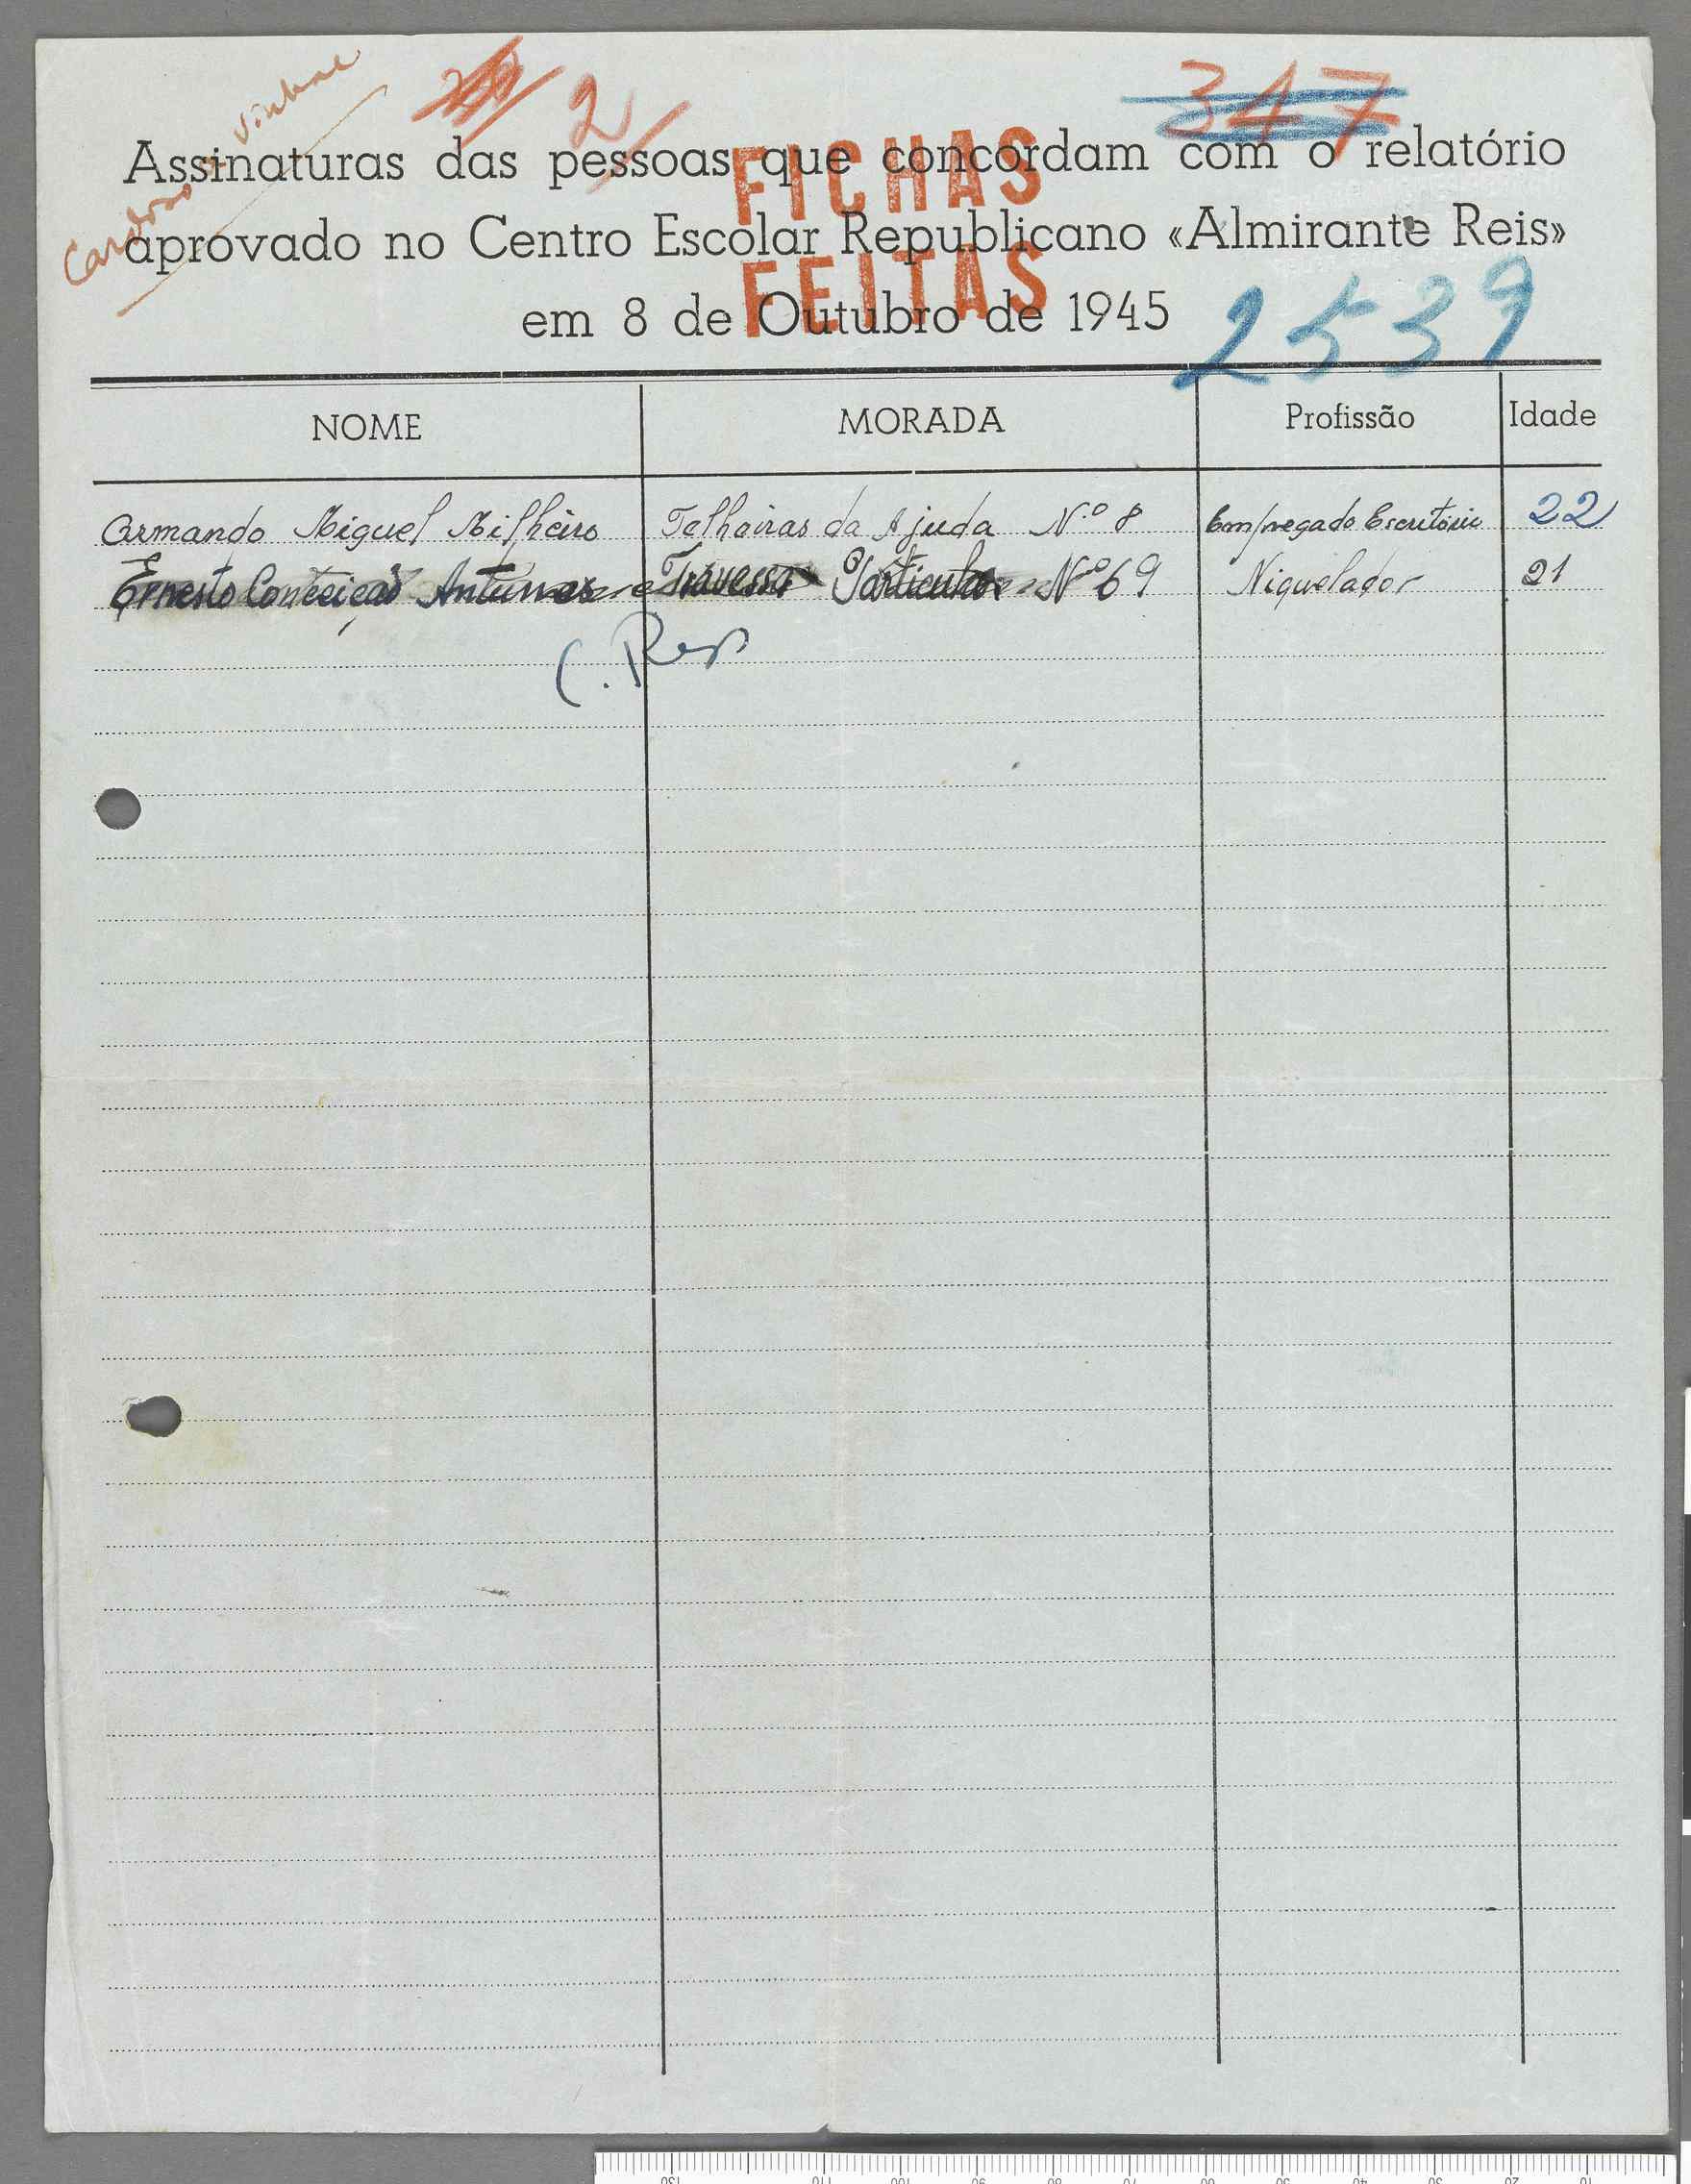 Cardoso Vinhae
2
347
Assinaturas das pessoas que concordam com o relatório
FICHAS
aprovado no Centro Escolar Republicano «Almirante Reis»
FEITAS
em 8 de Outubro de 1945
2539
NOME MORADA Profissão Idade
Armando Miguel Milheiro Telheiras da Ajuda N.º 8 Empregado Escritório 22
Ernesto Conceição Antunes Travessa Particular Nº 69 Niquelador 21
C. Rep